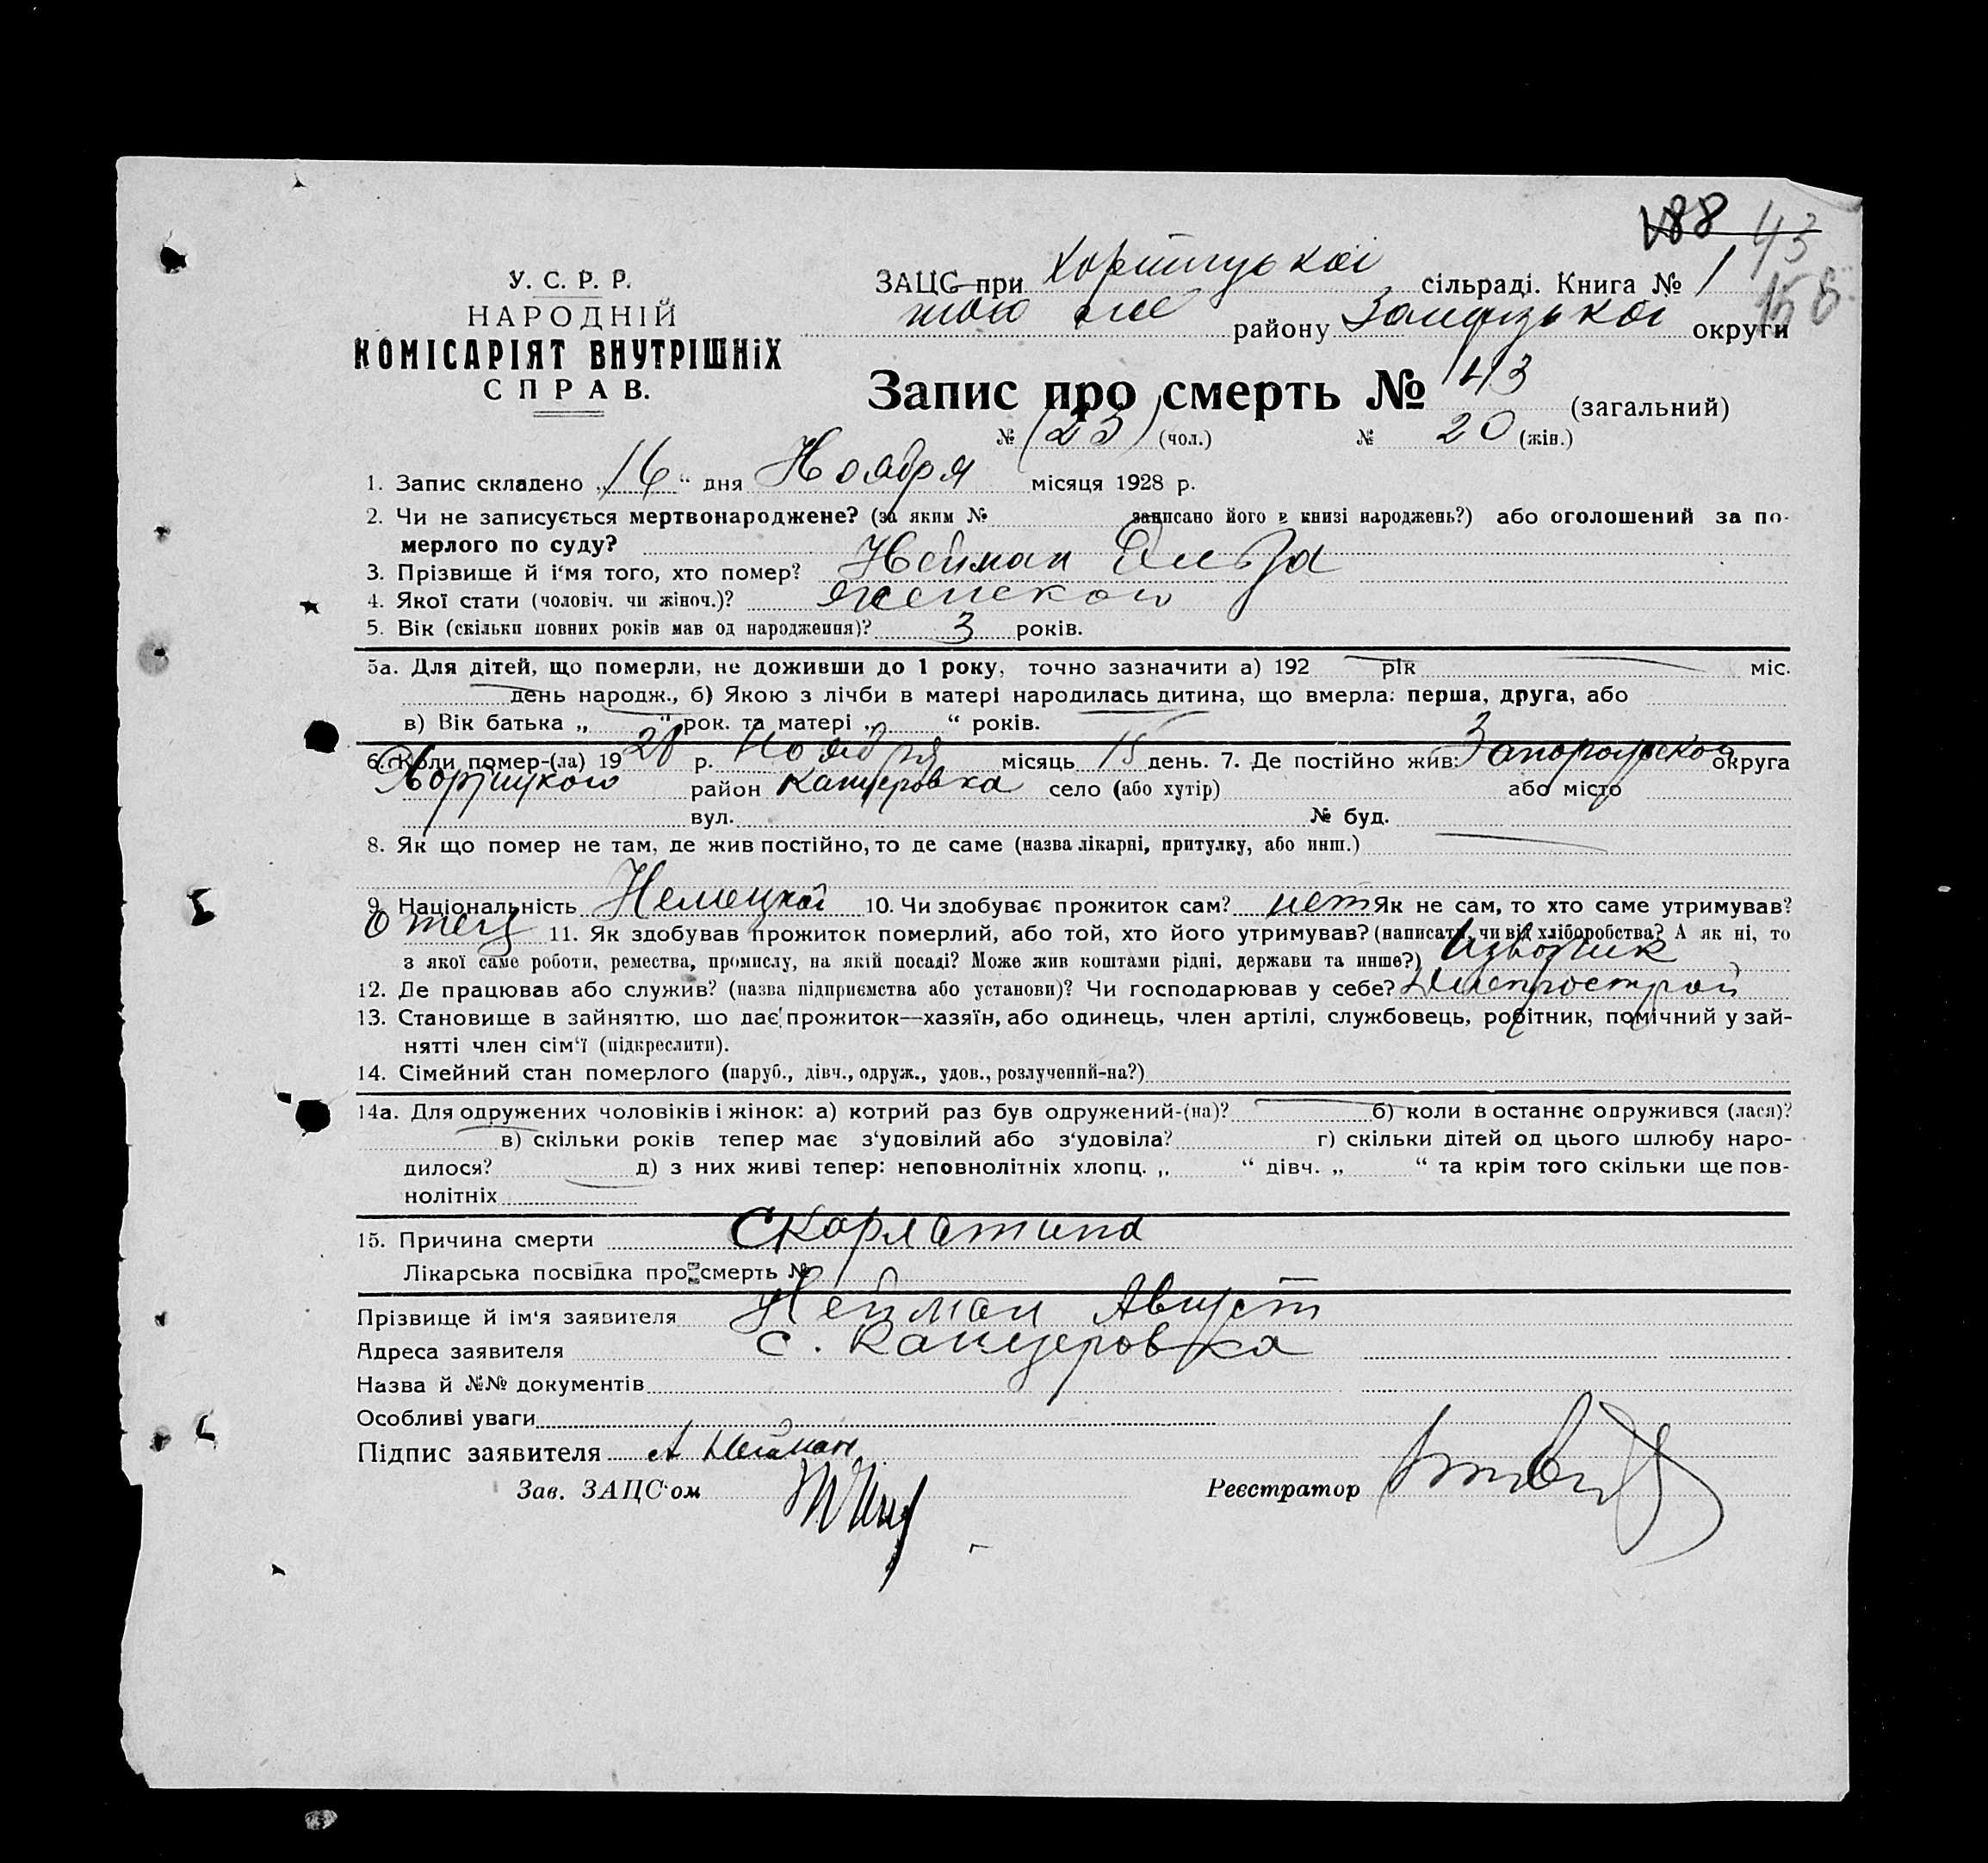 188 43
156
У. С. Р. Р.
НАРОДНІЙ
КОМІСАРІЯТ ВНУТРІШНІХ
СПРАВ.
ЗАЦС при Хортицькоі сільраді. Книга № 1
тою же району Запорізькоі округи
Запис про смерть № 43 (загальний)
№ (23) (чол.) № 20 (жін.)
1. Запис складено „16“ дня Ноября місяця 1928 р.
2. Чи не записується мертвонароджене? (за яким № записано його в книзі народжень?) або оголошений за по-
мерлого по суду?
3. Прізвище й і'мя того, хто помер? Нейман Ельза
4. Якої стати (чоловіч. чи жіноч.)? женского
5. Вік (скільки повних років мав од народження)? 3 років.
5а. Для дітей, що померли, не доживши до 1 року, точно зазначити а) 192 рік міс.
день народж., б) Якою з лічби в матері народилась дитина, що вмерла: перша, друга, або
в) Вік батька „ “ рок. та матері „ “ років.
6. Коли помер-(ла) 1928 р. Ноября місяць 15 день. 7. Де постійно жив: Запорожской округа
Хортицкого район Канцеровка село (або хутір) або місто
вул. № буд.
8. Як що помер не там, де жив постійно, то де саме (назва лікарні, притулку, або инш.)
9. Національність Немецкой 10. Чи здобуває прожиток сам? нет Як не сам, то хто саме утримував?
Отец 11. Як здобував прожиток померлий, або той, хто його утримував? (написати, чи від хліборобства? А як ні, то
з якої саме роботи, ремества, промислу, на якій посаді? Може жив коштами рідні, держави та инше?) Извозчик
12. Де працював або служив? (назва підприємства або установи)? Чи господарював у себе? Днепрострой
13. Становище в зайняттю, що дає прожиток—хазяїн, або одинець, член артілі, службовець, робітник, помічний у зай-
нятті член сім'ї (підкреслити).
14. Сімейний стан померлого (паруб., дівч., одруж., удов., розлучений-на?)
14а. Для одружених чоловіків і жінок: а) котрий раз був одружений-(на)? б) коли в останнє одружився (лася)?
в) скільки років тепер має з'удовілий або з'удовіла? г) скільки дітей од цього шлюбу наро-
дилося? д) з них живі тепер: неповнолітніх хлопц. „ “ дівч. „ “ та крім того скільки ще пов-
нолітніх
15. Причина смерти Скарлатина
Лікарська посвідка про смерть №
Прізвище й ім'я заявителя Нейман Август
Адреса заявителя с. Канцеровка
Назва й №№ документів
Особливі уваги
Підпис заявителя А Нейман
Зав. ЗАЦС'ом Реєстратор